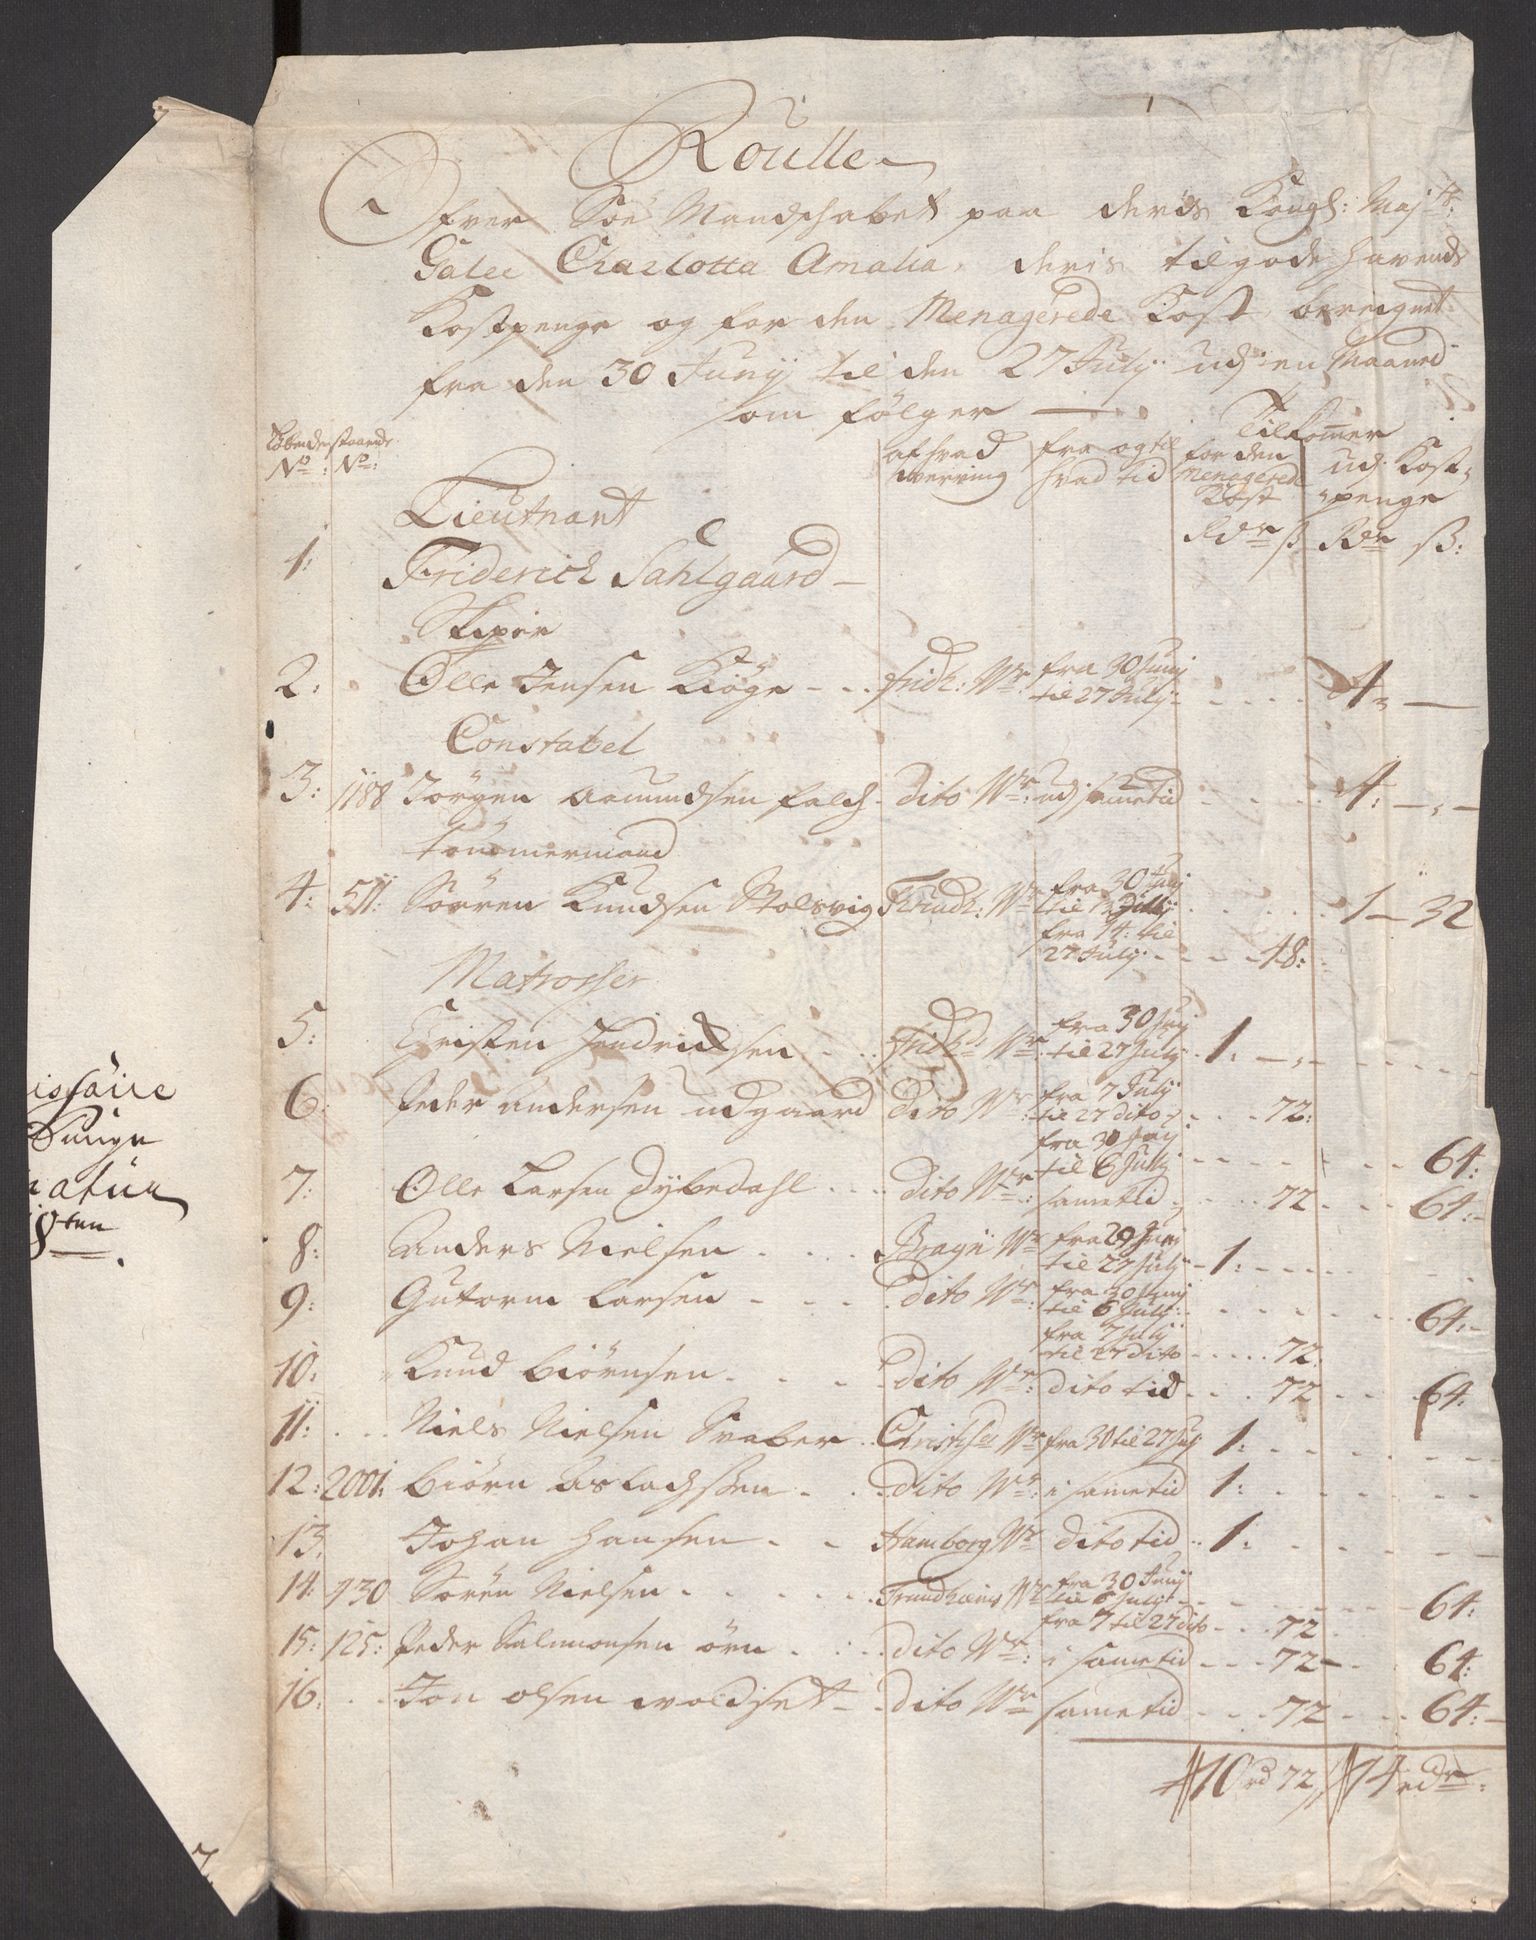 Roulle
Ofver Söe Mandschabet paa deris Kongl: Majts:
Galei Charlotta Amalia, deris tilgode havende
Kostpenge og for den Menagerede Kost, bereignet
fra den 30 Junij til den 27 July ud i en Maaned
som følger
Løbende staaende
No: No:
af hvad werving
fra og til hvad tid
Tilkomer
for den Menagerede Kost
ud Kost-penge
Rdr ß Rdr ß:
Lieutnant
1: Friderich Sahlgaard
Skiper
2: Olle Jensen Kiöge - - Fridh: Wr: fra 30 Junij til 27 July - - - 4: —
Constabel
3: 1188 Jörgen Aamundsen falch. dito Wr: udj same tid - - - 4: - , -
Tömmermand
4: 511: Sörren Knudsen Stolsvig Trundh: Wr: fra 30 Junij til 13 July - - - 1 - 32
fra 14: til 27 July - - - 48:
Matrosser
5: Cristen Hendrichsen - - Fridh: Wr: fra 30 Junij til 27 July - 1: - , -
6: Peder Andersen udgaard dito Wr: fra 7 July til 27 dito - - - 72:
fra 30 Junij til 6 July - - - 64:
7: Olle Larsen dybedahl - - dito Wr: same tid - - 72 - - - 64: -
8: Anders Nielsen - - - Bragn Wr: fra 29 Junij til 27 July - 1: - - -
9: Gutorm Larsen - - - dito Wr: fra 30 Junij til 6 July: - - - 64: -
fra 7 July til 27 dito - - - 72:
10: Knud Biörnsen - - - dito Wr: dito tid - - - 72 - - - 64:
11: Niels Nielsen Svaber - Christs: Wr: fra 30 til 27 July 1: - - -
12: 2001: Biörn Aslachssen - - dito Wr: i same tid 1: - - -
13. Johan Hansen - - Hamborg Wr: dito tid - 1: - - -
14: 430 Sören Nielsen - - - Trundhiems Wr: fra 30 Junij til 6 July - - - 64:
fra 7 til 27 dito - - - 72
15: 125: Peder Salmonsen örn - - dito Wr: i same tid - - - 72 - - 64:
16: Jon olsen woldset - - dito Wr: same tid - - - 72 - - - 64: -
10 rd 72 // 14 rdr:
isfäire
Punge
natüra
18ten